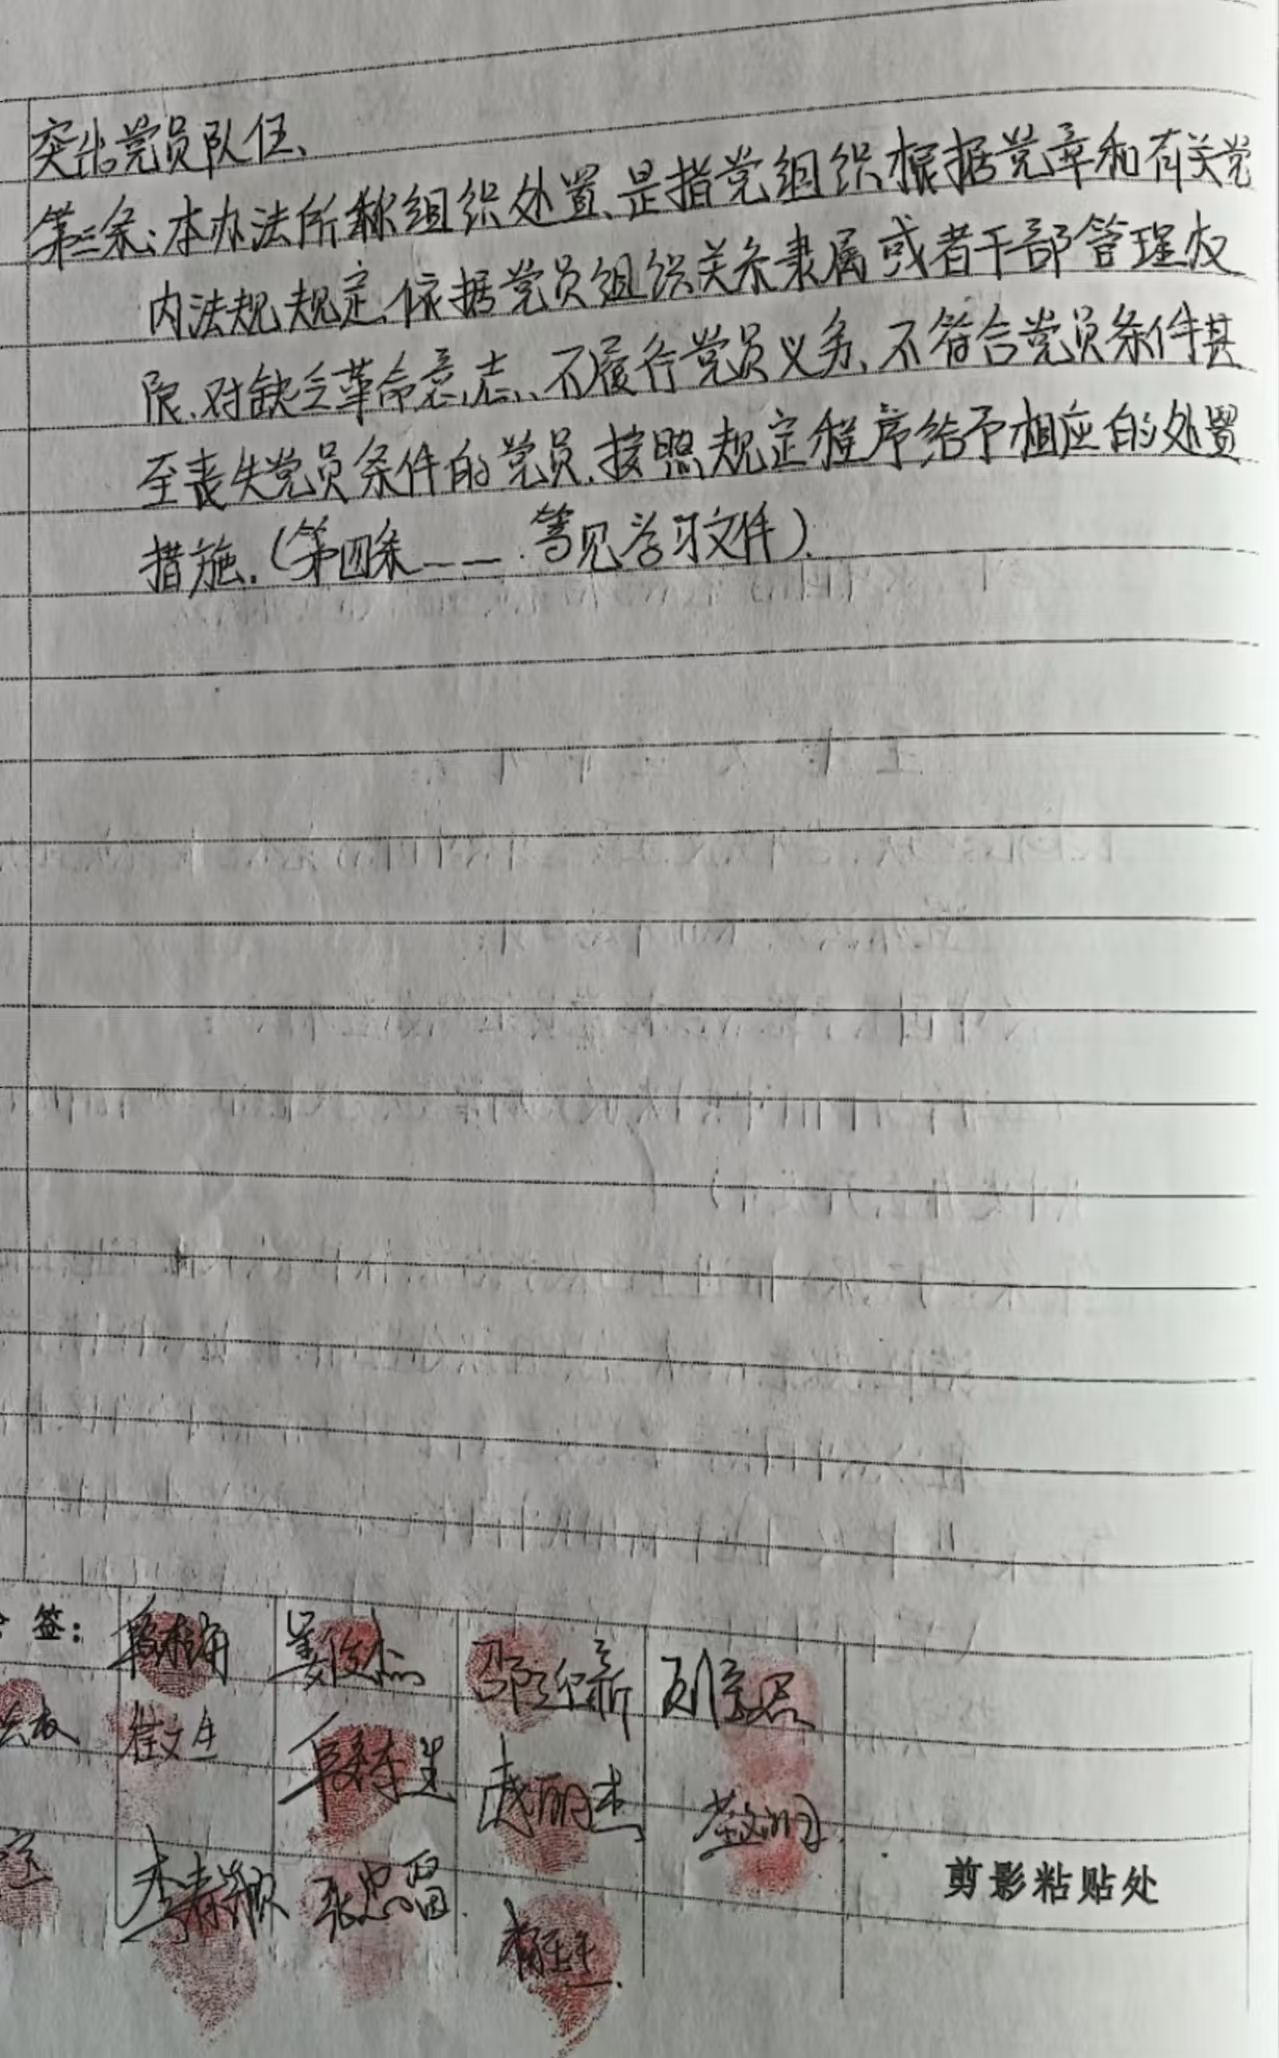 突出党员队伍、
第三条:本办法所称组织处置、是指党组织根据党章和有关党
内法规规定、依据党员组织关系隶属或者干部管理权
限、对缺乏革命意志、不履行党员义务、不符合党员条件甚
至丧失党员条件的党员、按照规定程序给予相应的处置
措施.(第四条——.等见学习文件).
签:
邵迎新
崔文生
赵丽杰
李春颖 张忠留
剪影粘贴处